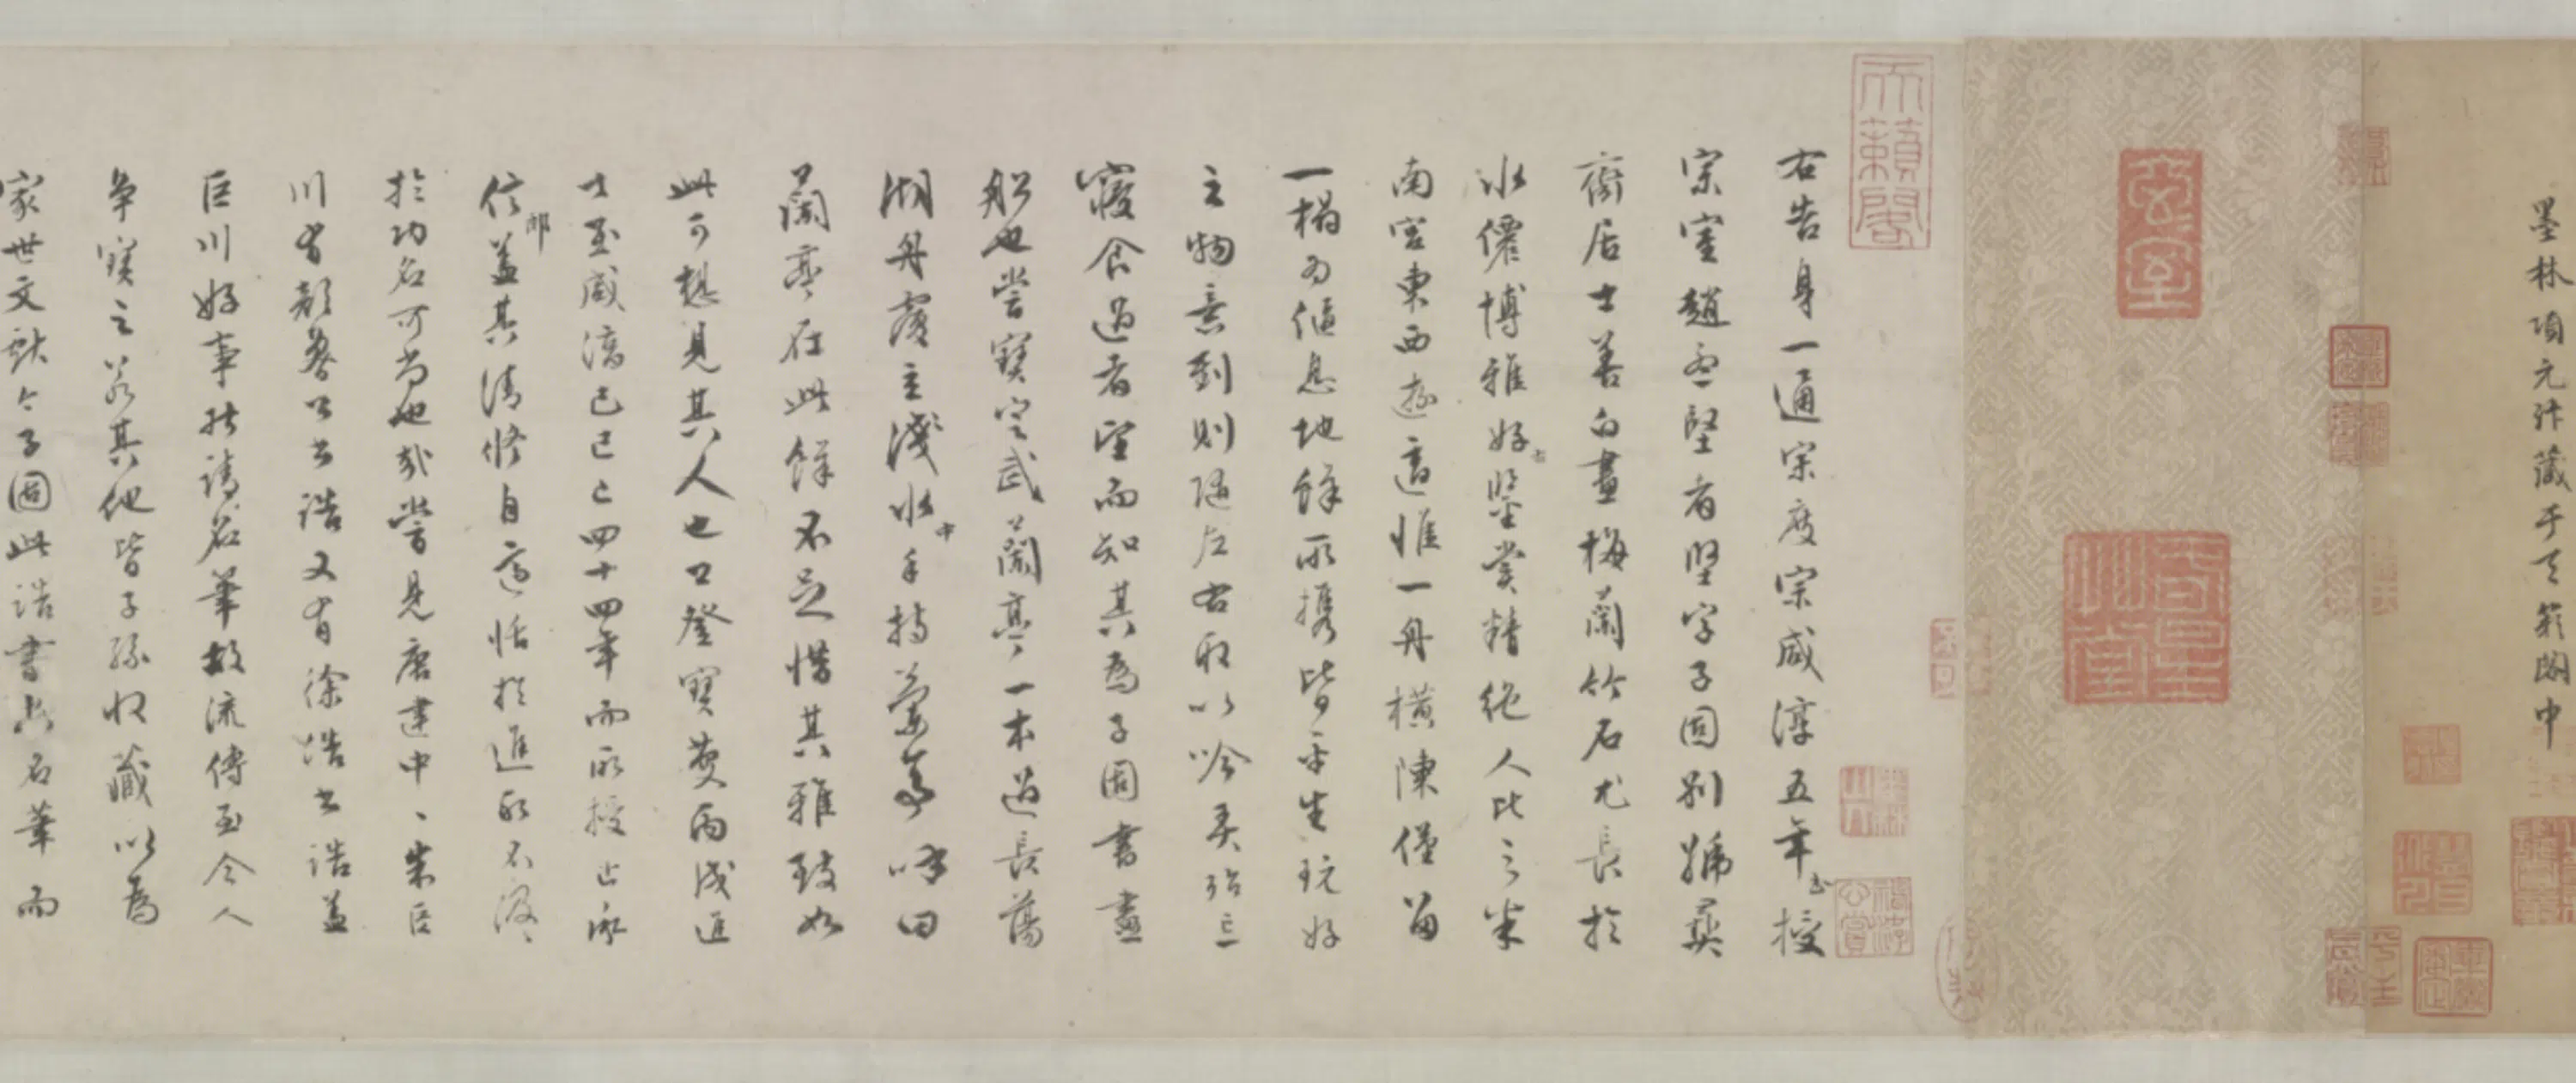 墨林項元汴藏于天籟閣中
天籟閣
右告身一通宋度宗咸淳五年出授
宗室趙孟堅者堅字子固別號彝
齋居士善白畫梅蘭竹石尤長於
水僊博雅好鑒賞精絕人比之米
南宮東西遊適惟一舟橫陳僅留
一榻為偃息地餘所攜皆平生玩好
之物意到則隨左右取以吟弄殆忘
寢食過者望而知其為子固書畫
船也嘗寶定武蘭亭一本過長蕩
湖舟覆立淺水中手持
蘭亭在此餘不足惜其雅致如
此可想見其人也登寶慶丙戌進
士至咸淳己巳已四十四年而所授止承
信郎蓋其清修自適恬於進取不汲汲
於功名可尚也哉嘗見唐建中、朱巨
川有顏魯公書誥又有徐浩書誥蓋
巨川好事能請名筆故流傳至今人
爭寶之若其他皆子孫收藏以為
家世文獻今子固此誥書出名筆而